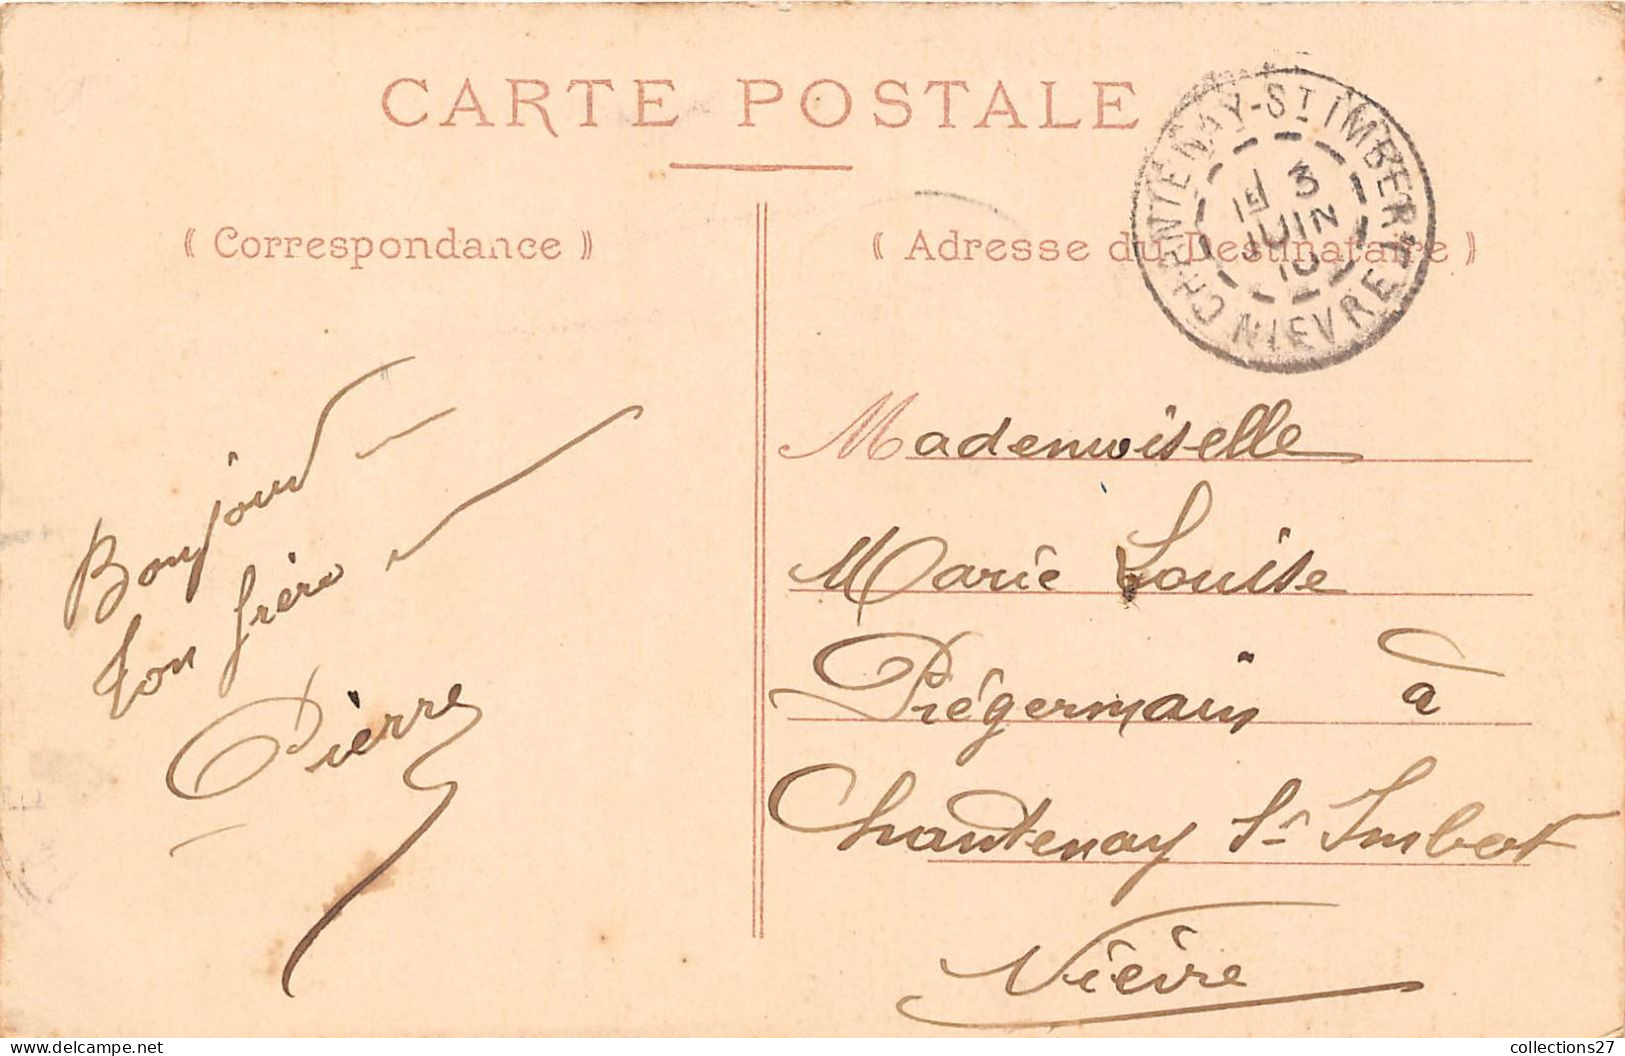 CARTE POSTALE
⸨ Correspondance ⸩
⸨ Adresse du Destinataire ⸩
CHANTENAY-ST IMBERT
1E 3
JUIN
10
NIEVRE
Bonjour
ton frère
Pierre
Mademoiselle
Marie Louise
Prégermain à
Chantenay St Imbert
Nièvre
collections27